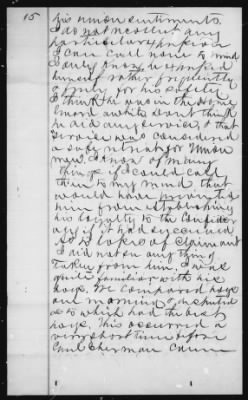 15
his union sentiments.
I do not recollect any
particular expression
I can call now to mind
I only know he expressed
himself rather frequently
& freely for his safety
I think he was in the Home
Guard awhile dont think
he did any service, & that
service was considered
a subterfuge for Union
men. I know of many
things if I could call
them to my mind that
would have prevented
him from establishing
his loyalty to the Confeder
acy if it had succeeded
As to loss of Claimant
I did not see any thing
taken from him. I was
quite familiar with his
hogs. We compared hogs
one morning & disputed
as to which had the best
hogs. This occurred a
very short time before
Genl Sherman came